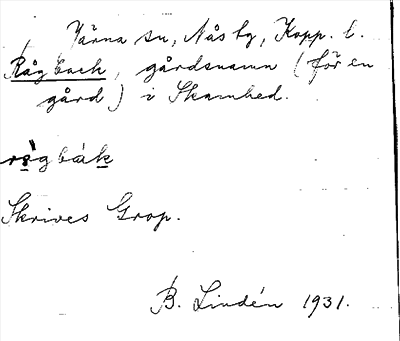 Järna sn, Nås hg, Kopp. l.
Rågback, gårdsnamn (för en
gård) i Skamhed.
Skrives Grop.
B. Lindén 1931.